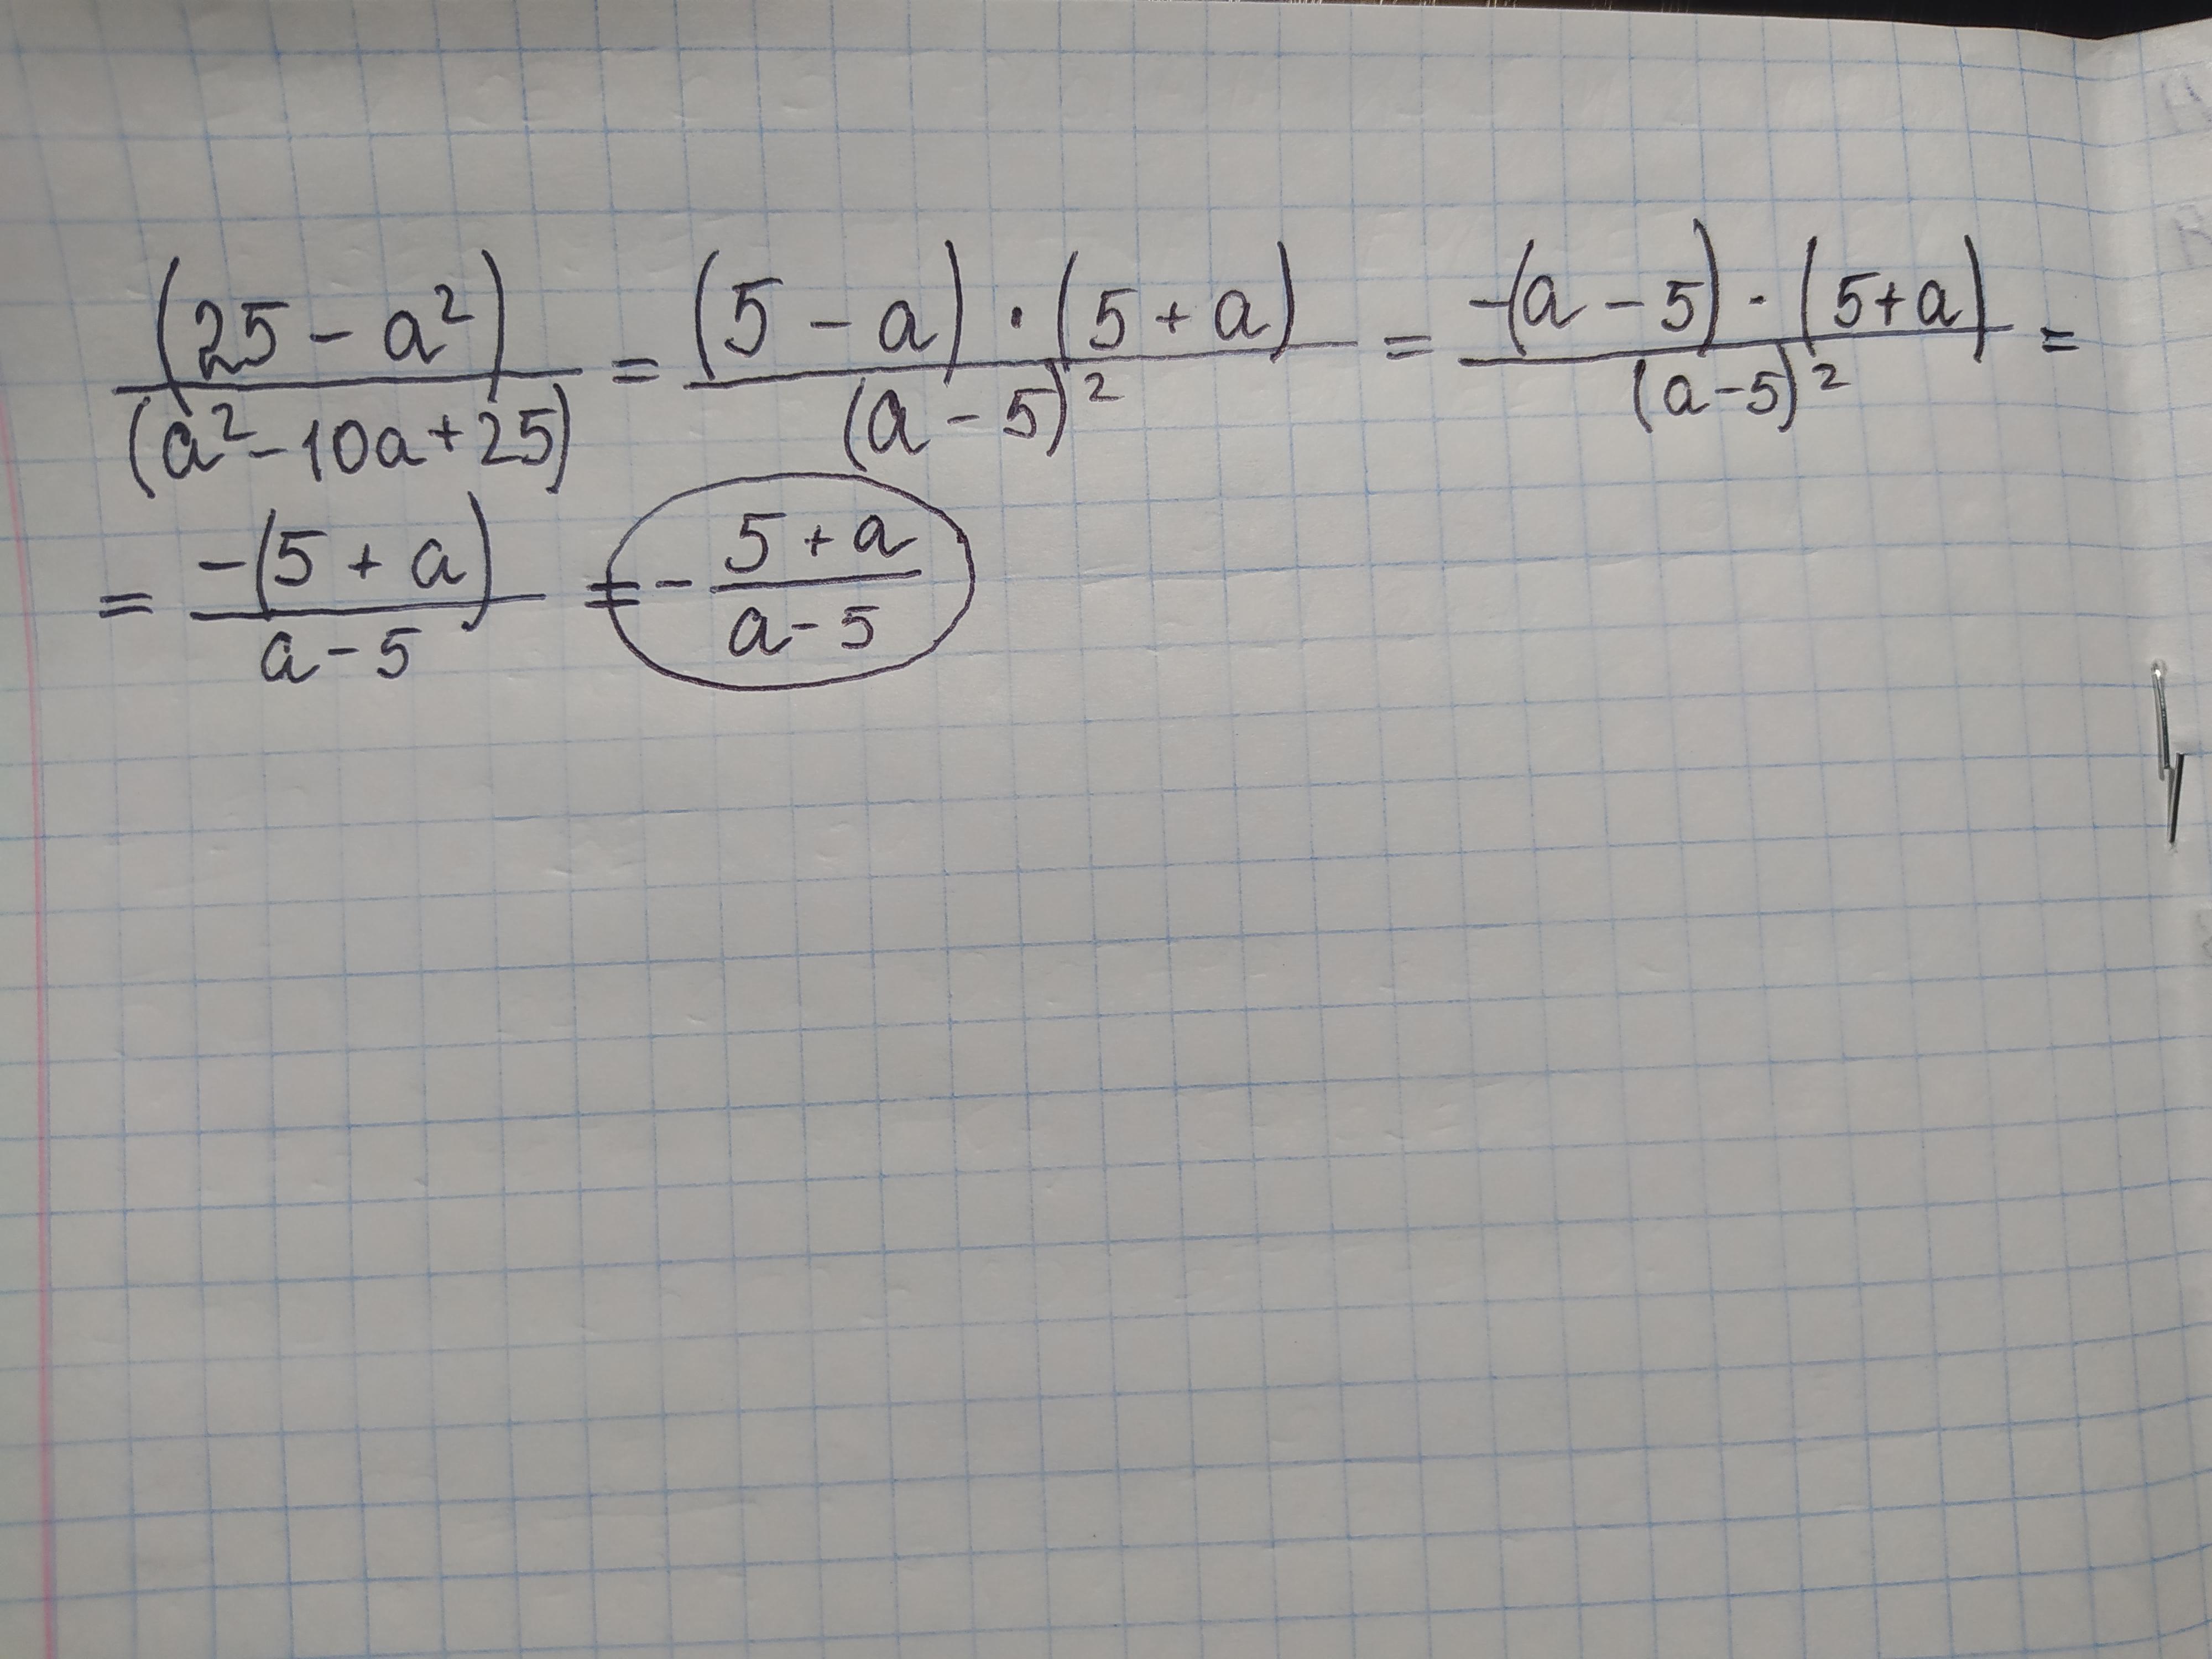 (25 - a²)/(a² - 10a + 25) = (5 - a) · (5 + a)/(a - 5)² = -(a - 5) · (5 + a)/(a - 5)² =
= -(5 + a)/a - 5 = - 5 + a/a - 5